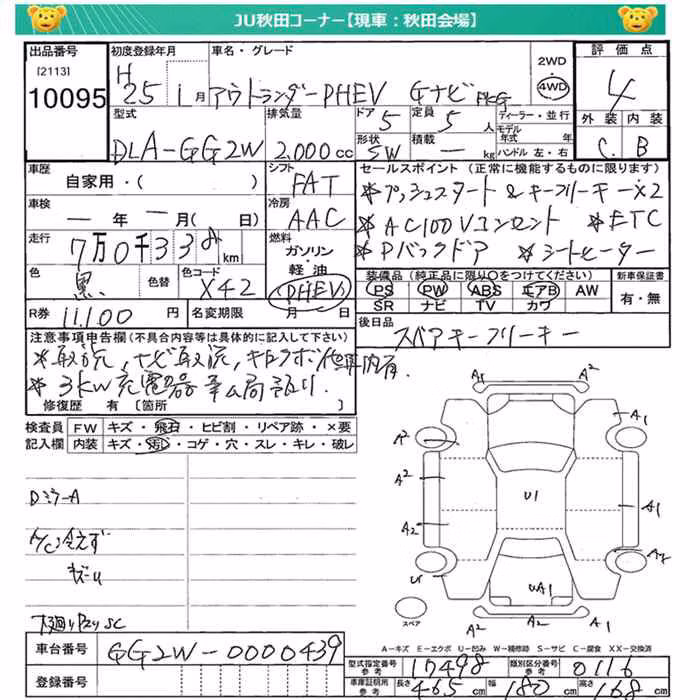 JU秋田コーナー【現車：秋田会場】
出品番号 初度登録年月 車名・グレード 評価点
[2113] H 2WD
10095 25 1月 アウトランダーPHEV Gナビ PKG 4WD 4
型式 排気量 ドア 定員 ディーラー・並行 外装 内装
5 5人 モデル年式 年
DLA-GG2W 2,000cc 形状 SW 積載 ― kg ハンドル 左・右 C B
車歴 シフト セールスポイント（正常に機能するものに限ります）
自家用・（ ） FAT *プッシュスタート&キーフリーキーX2
車検 冷房 *AC100Vコンセント *ETC
―年 ―月（ 日） AAC *Pバックドア *シートヒーター
走行 燃料
7万0千33 km ガソリン・軽油
装備品（純正品に限り○をつけてください） 新車保証書
色 色替 色コード PS PW ABS エアB AW 有・無
黒 X42 (PHEV) SR ナビ TV カワ
R券 11,100円 名変期限 月 日 後日品
注意事項申告欄（不具合内容等は具体的に記入して下さい） スペアキーフリーキー
*取説,ナビ取説,
*3kw充電器
修復歴 有〔箇所 〕
検査員 FW キズ・飛石・ヒビ割・リペア跡・×要
記入欄 内装 キズ・汚レ・コゲ・穴・スレ・キレ・破レ
A1 A2
A1
A2
A2 U1 A1
A2
A2
U UA1
A1 A2 A2
DミラーA
A/C冷えず
キズU
スペア
A－キズ E－エクボ U－凹み W－補修跡 S－サビ C－腐食 XX－交換済
車台番号 GG2W-0000439
型式指定番号 参考 17498 類別区分番号 参考 0116
登録番号 車庫証明用 参考 長さ 465cm 幅 180cm 高さ 168cm